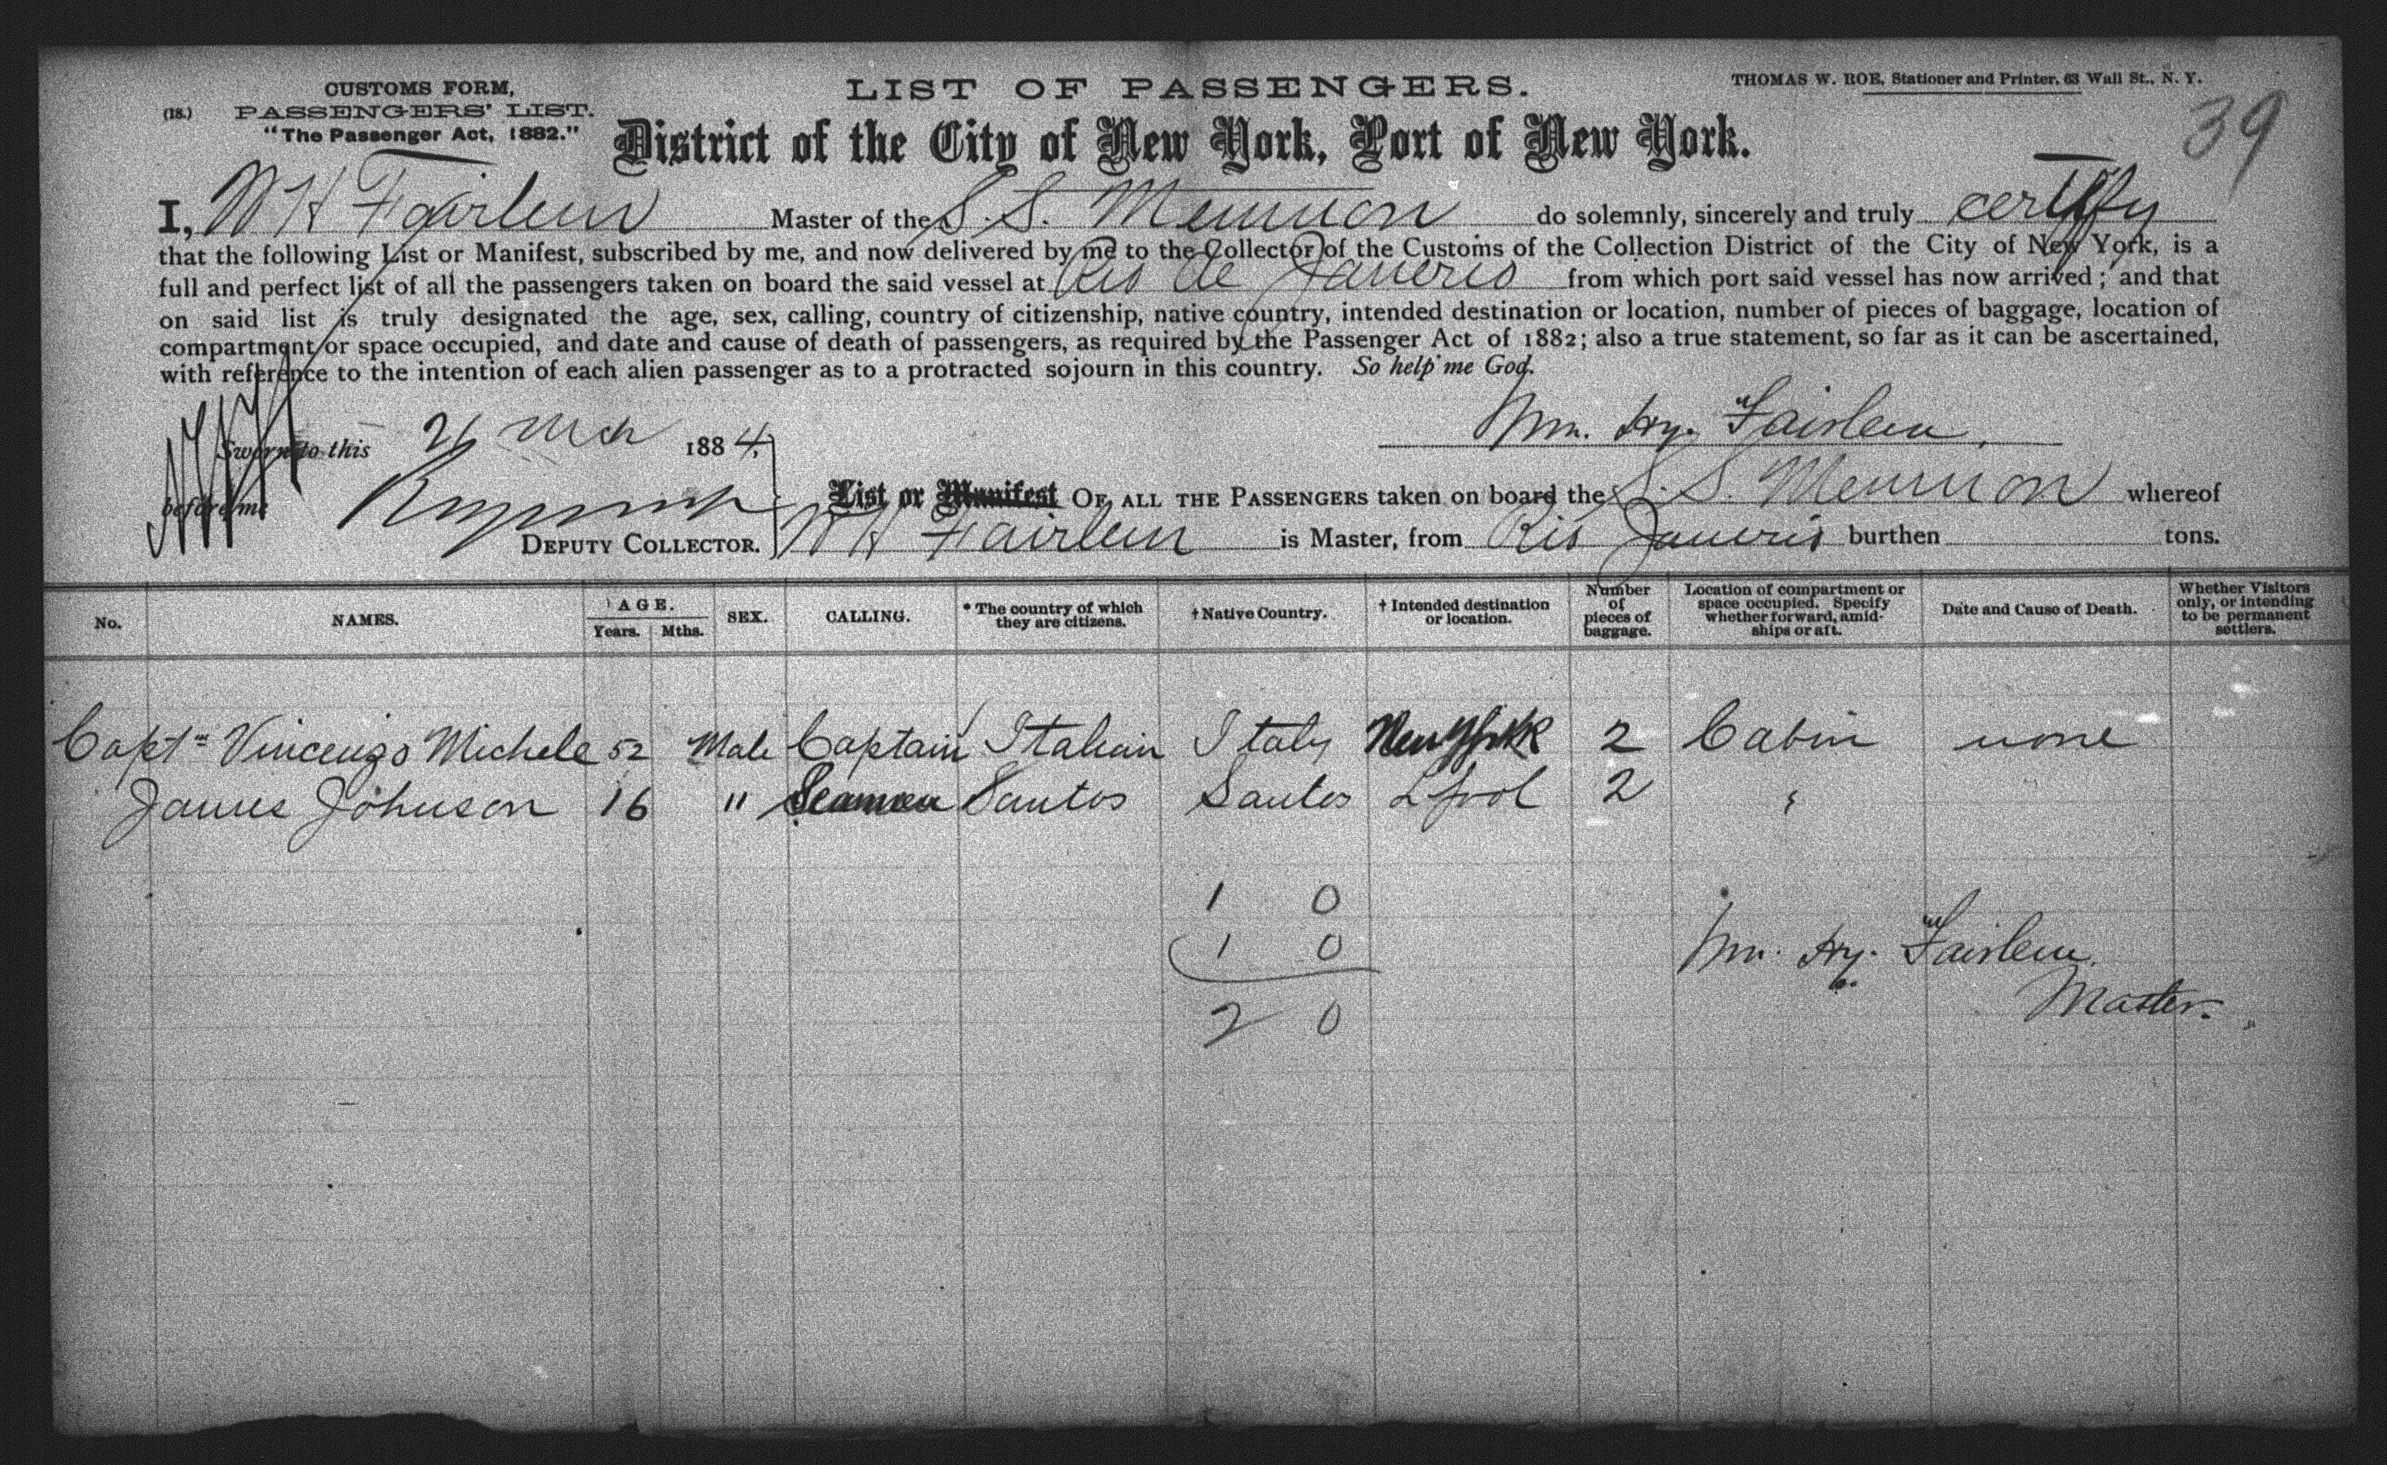 CUSTOMS FORM,
(18.) PASSENGERS' LIST.
"The Passenger Act, 1882."
LIST OF PASSENGERS.
THOMAS W. ROE, Stationer and Printer, 63 Wall St., N. Y.
39
District of the City of New York, Port of New York.
I, W H Fairlem Master of the S. S. Memnon do solemnly, sincerely and truly certify
that the following List or Manifest, subscribed by me, and now delivered by me to the Collector of the Customs of the Collection District of the City of New York, is a
full and perfect list of all the passengers taken on board the said vessel at Rio de Janeiro from which port said vessel has now arrived; and that
on said list is truly designated the age, sex, calling, country of citizenship, native country, intended destination or location, number of pieces of baggage, location of
compartment or space occupied, and date and cause of death of passengers, as required by the Passenger Act of 1882; also a true statement, so far as it can be ascertained,
with reference to the intention of each alien passenger as to a protracted sojourn in this country. So help me God.
Wm. Hy. Fairlem.
Sworn to this 21 Mch 1884,
before me
DEPUTY COLLECTOR.
List or Manifest OF ALL THE PASSENGERS taken on board the S. S. Memnon whereof
W H Fairlem is Master, from Rio Janeiro burthen tons.
No. NAMES. AGE. Years. Mths. SEX. CALLING. * The country of which they are citizens. † Native Country. † Intended destination or location. Number of pieces of baggage. Location of compartment or space occupied. Specify whether forward, amidships or aft. Date and Cause of Death. Whether Visitors only, or intending to be permanent settlers.
Captn Vincenzo Michele 52 Male Captain Italian Italy New York 2 Cabin none
James Johnson 16 " Seaman Santos Santos Lpool 2 "
1 0
1 0
2 0
Wm. Hy. Fairlem.
Master.